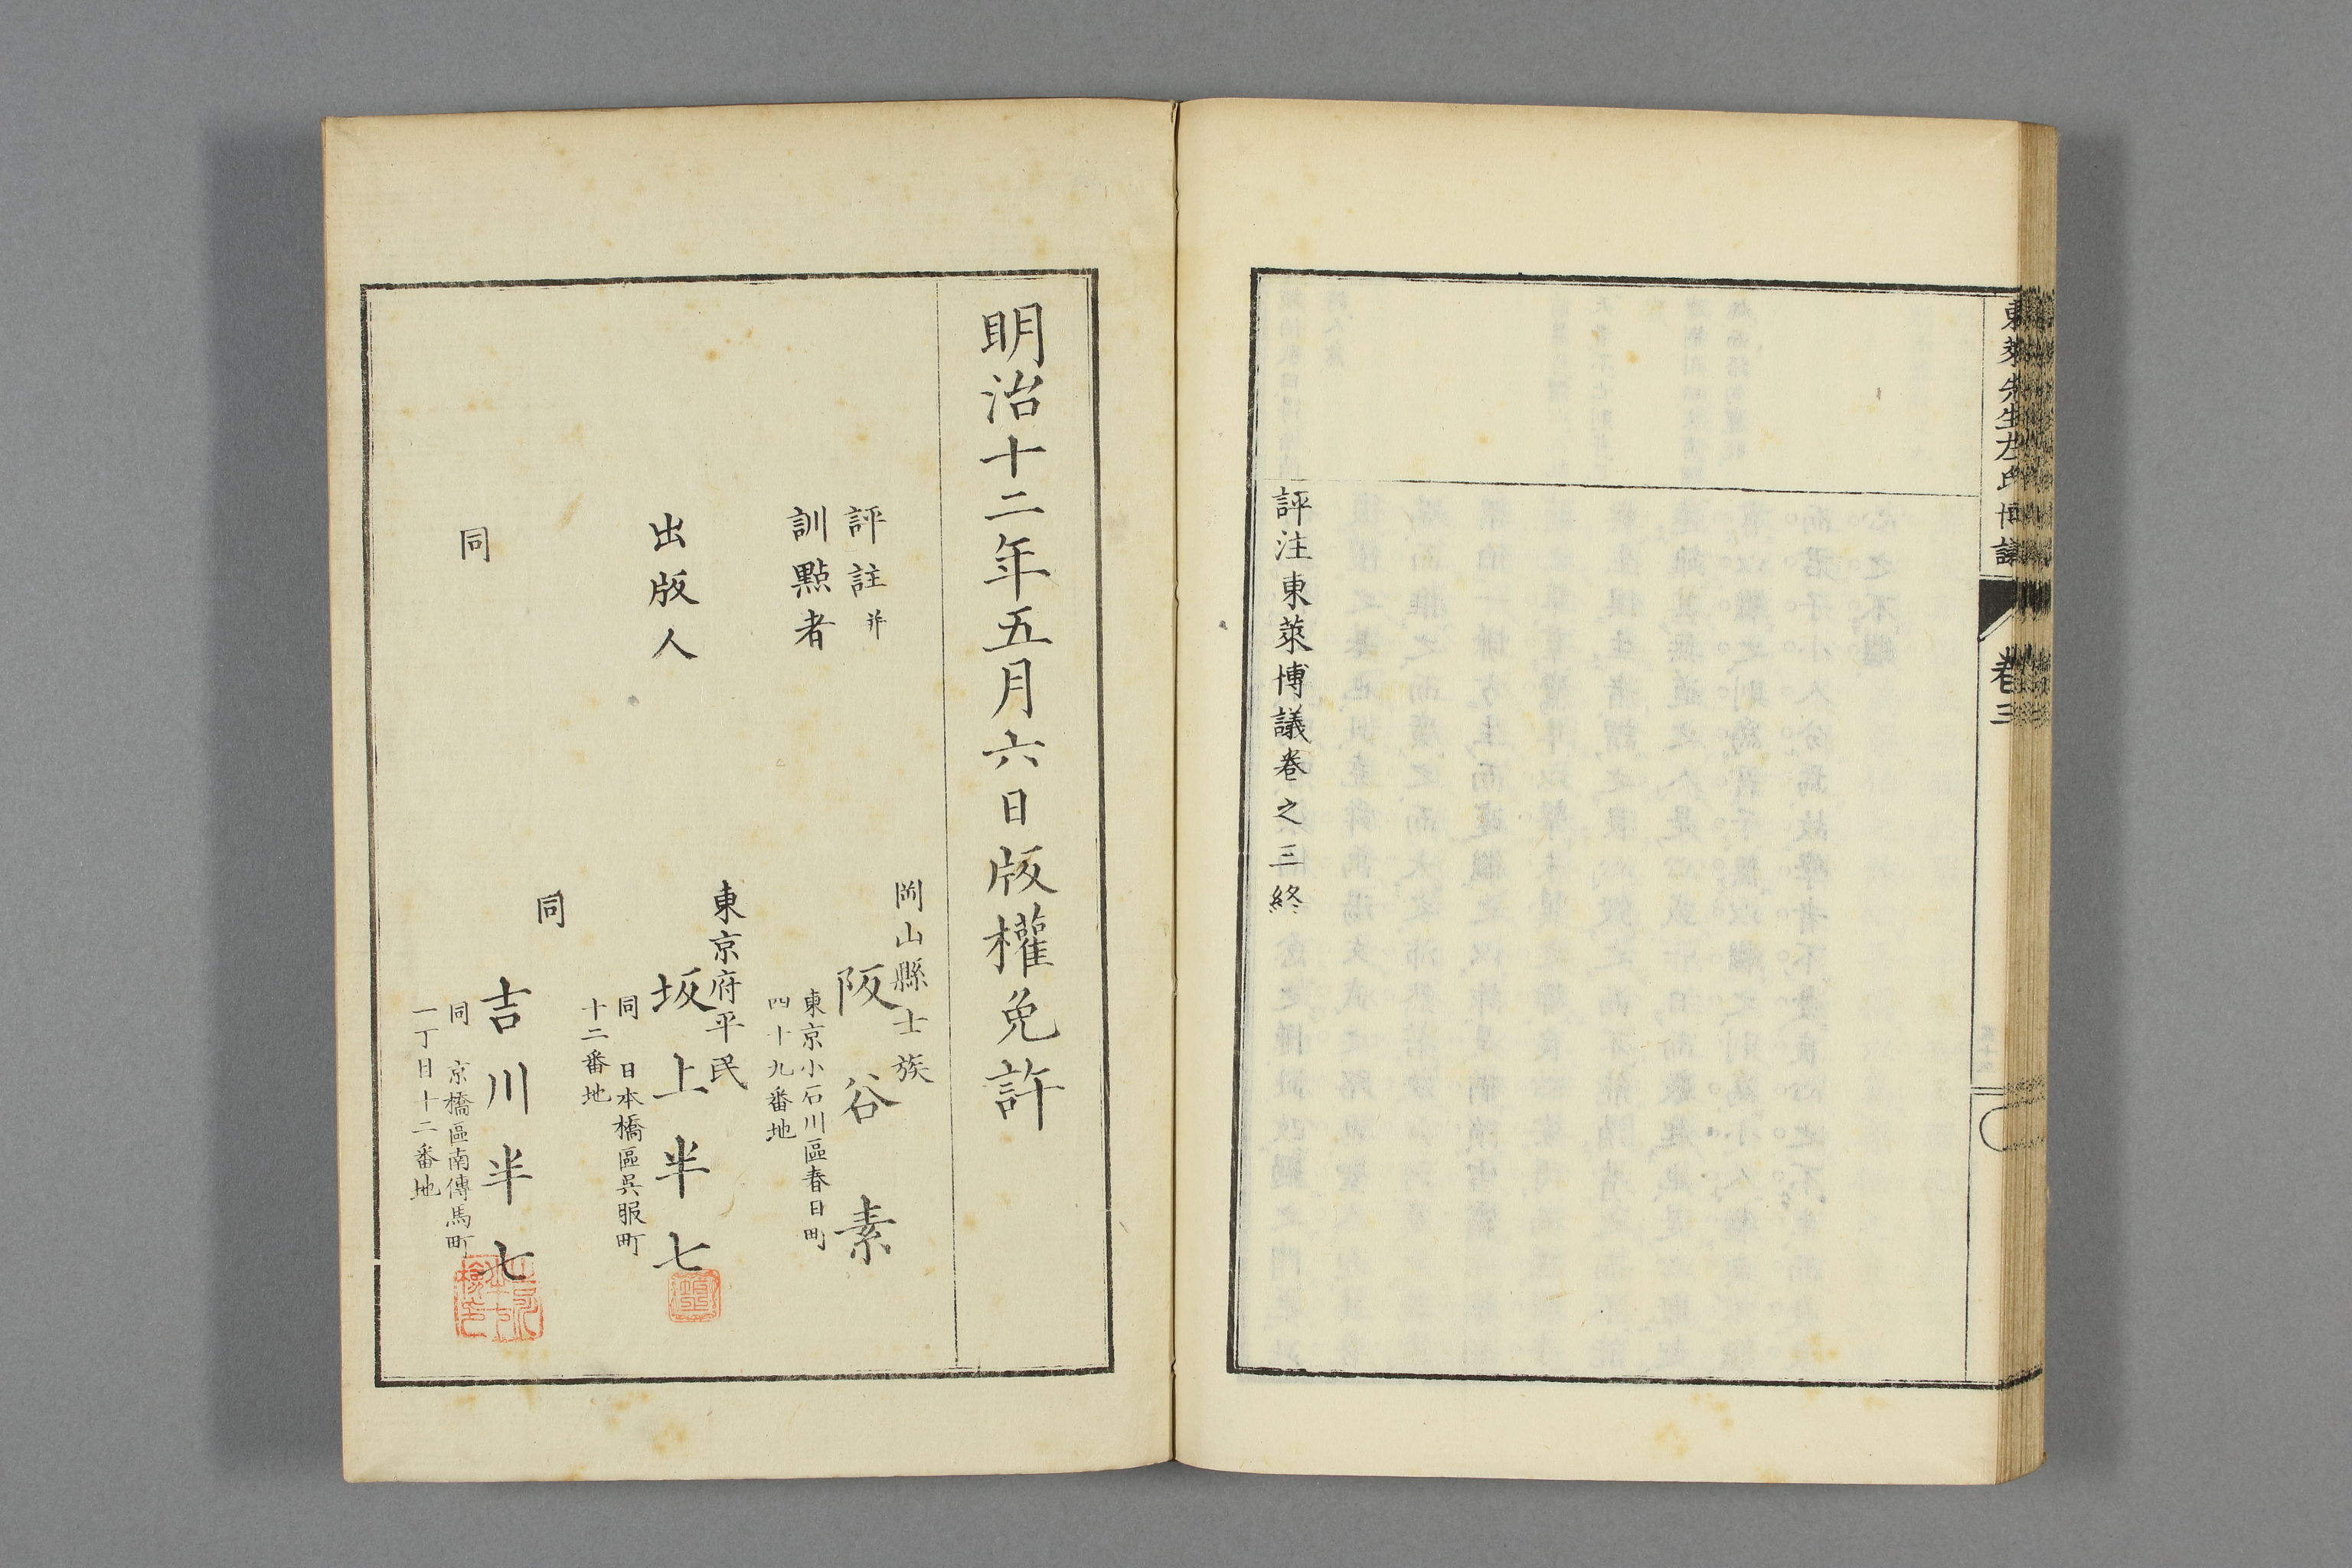 東萊先生左氏博議
卷三
評注東萊博議卷之三終
明治十二年五月六日版權免許
評註并
訓點者
岡山縣士族
阪谷素
東京小石川區春日町
四十九番地
出版人
東京府平民
坂上半七
同 日本橋區吳服町
十二番地
同
同
吉川半七
同 京橋區南傳馬町
一丁目十二番地